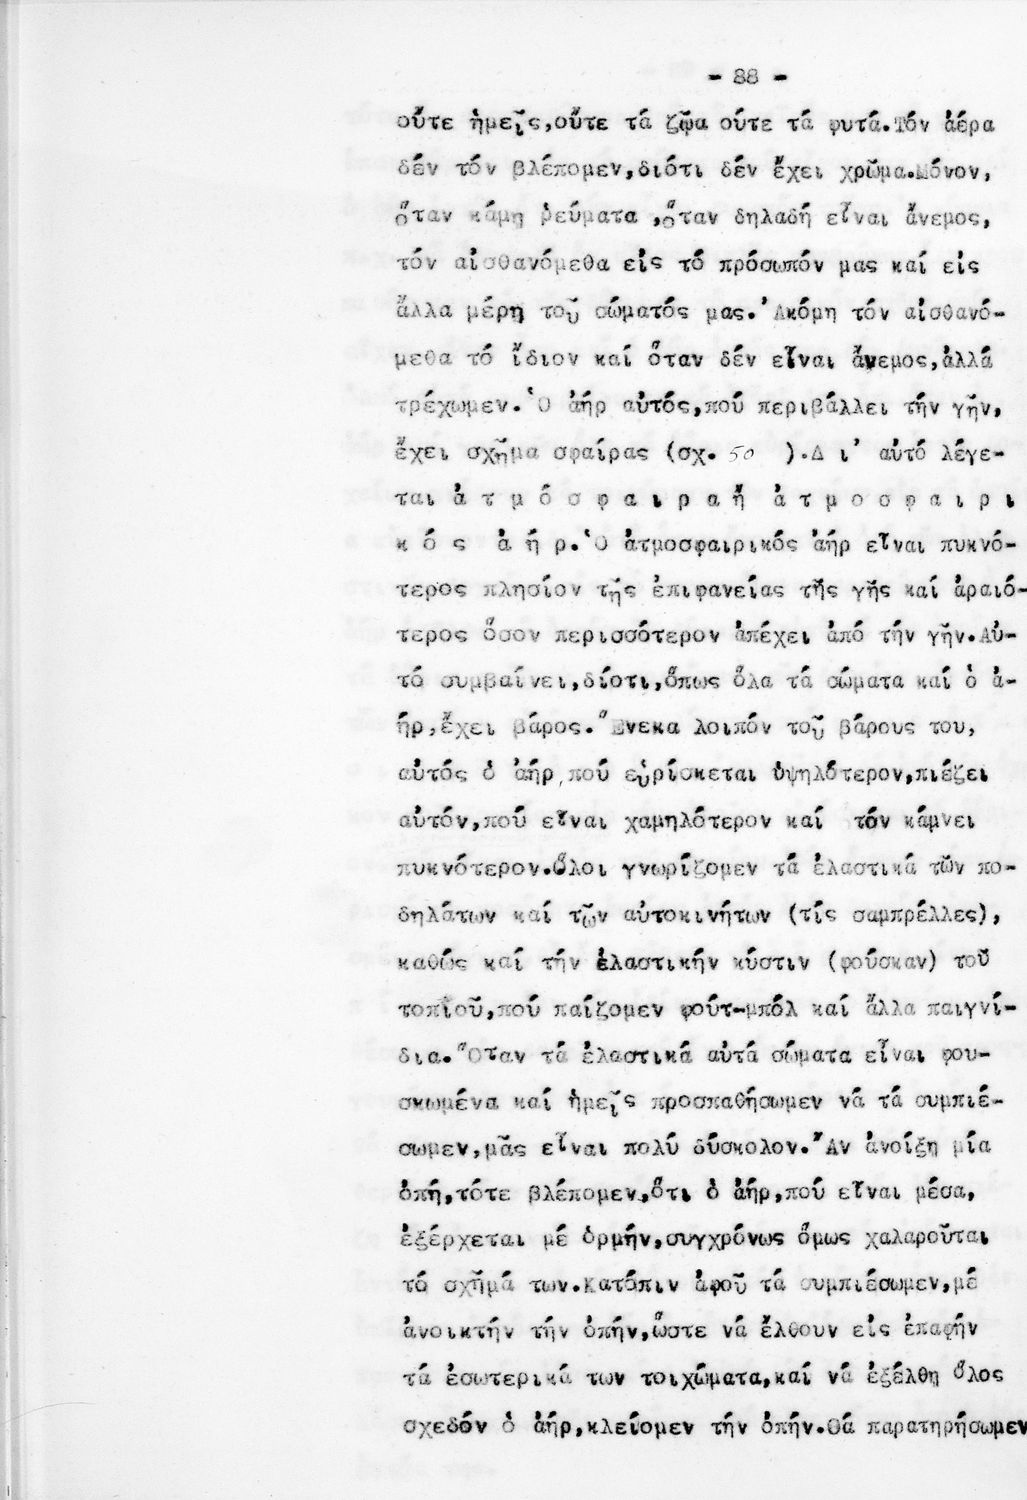 - 88 -
οὔτε ἡμεῖς,οὔτε τά ζῷα οὔτε τά φυτά.Τόν ἀέρα
δέν τόν βλέπομεν,διότι δέν ἔχει χρῶμα.Μόνον,
ὅταν κάμη ρεύματα ,ὅταν δηλαδή εἶναι ἄνεμος,
τόν αἰσθανόμεθα εἰς τό πρόσωπόν μας καί εἰς
ἄλλα μέρη τοῦ σώματός μας.'Ακόμη τόν αἰσθανό-
μεθα τό ἴδιον καί ὅταν δέν εἶναι ἄνεμος,ἀλλά
τρέχωμεν.Ὁ ἀήρ αὐτός,πού περιβάλλει τήν γῆν,
ἔχει σχῆμα σφαίρας (σχ. 50 ).Δ ι' αὐτό λέγε-
ται ἀ τ μ ό σ φ α ι ρ α ἤ ἀ τ μ ο σ φ α ι ρ ι
κ ό ς ἀ ή ρ.Ὁ ἀτμοσφαιρικός ἀήρ εἶναι πυκνό-
τερος πλησίον τῆς ἐπιφανείας τῆς γῆς καί ἀραιό-
τερος ὅσον περισσότερον ἀπέχει ἀπό τήν γῆν.Αὐ-
τό συμβαίνει,διότι,ὅπως ὅλα τά σώματα καί ὁ ἀ-
ήρ,ἔχει βάρος.Ἕνεκα λοιπόν τοῦ βάρους του,
αὐτός ὁ ἀήρ,πού εὑρίσκεται ὑψηλότερον,πιέζει
αὐτόν,πού εἶναι χαμηλότερον καί τόν κάμνει
πυκνότερον.Ὅλοι γνωρίζομεν τά ἐλαστικά τῶν πο-
δηλάτων καί τῶν αὐτοκινήτων (τίς σαμπρέλλες),
καθώς καί τήν ἐλαστικήν κύστιν (φούσκαν) τοῦ
τοπίοῦ,πού παίζομεν φούτ-μπόλ καί ἄλλα παιγνί-
δια.Ὅταν τά ἐλαστικά αὐτά σώματα εἶναι φου-
σκωμένα καί ἡμεῖς προσπαθήσωμεν νά τά συμπιέ-
σωμεν,μᾶς εἶναι πολύ δύσκολον.Ἄν ἀνοίξη μία
ὀπή,τότε βλέπομεν,ὅτι ὁ ἀήρ,πού εἶναι μέσα,
ἐξέρχεται μέ ὁρμήν,συγχρόνως ὅμως χαλαροῦται
τό σχῆμά των.Κατόπιν ἀφοῦ τά συμπιέσωμεν,μέ
ἀνοικτήν τήν ὀπήν,ὥστε νά ἔλθουν εἰς ἐπαφήν
τά ἐσωτερικά των τοιχώματα,καί νά ἐξέλθη ὅλος
σχεδόν ὁ ἀήρ,κλείομεν τήν ὀπήν.Θά παρατηρήσωμεν